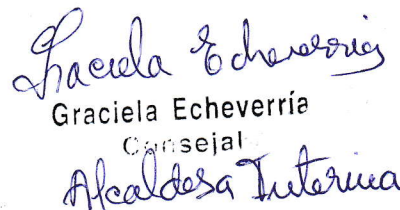 Graciela Echeverría
Graciela Echeverría
Consejal
Alcaldesa Interina